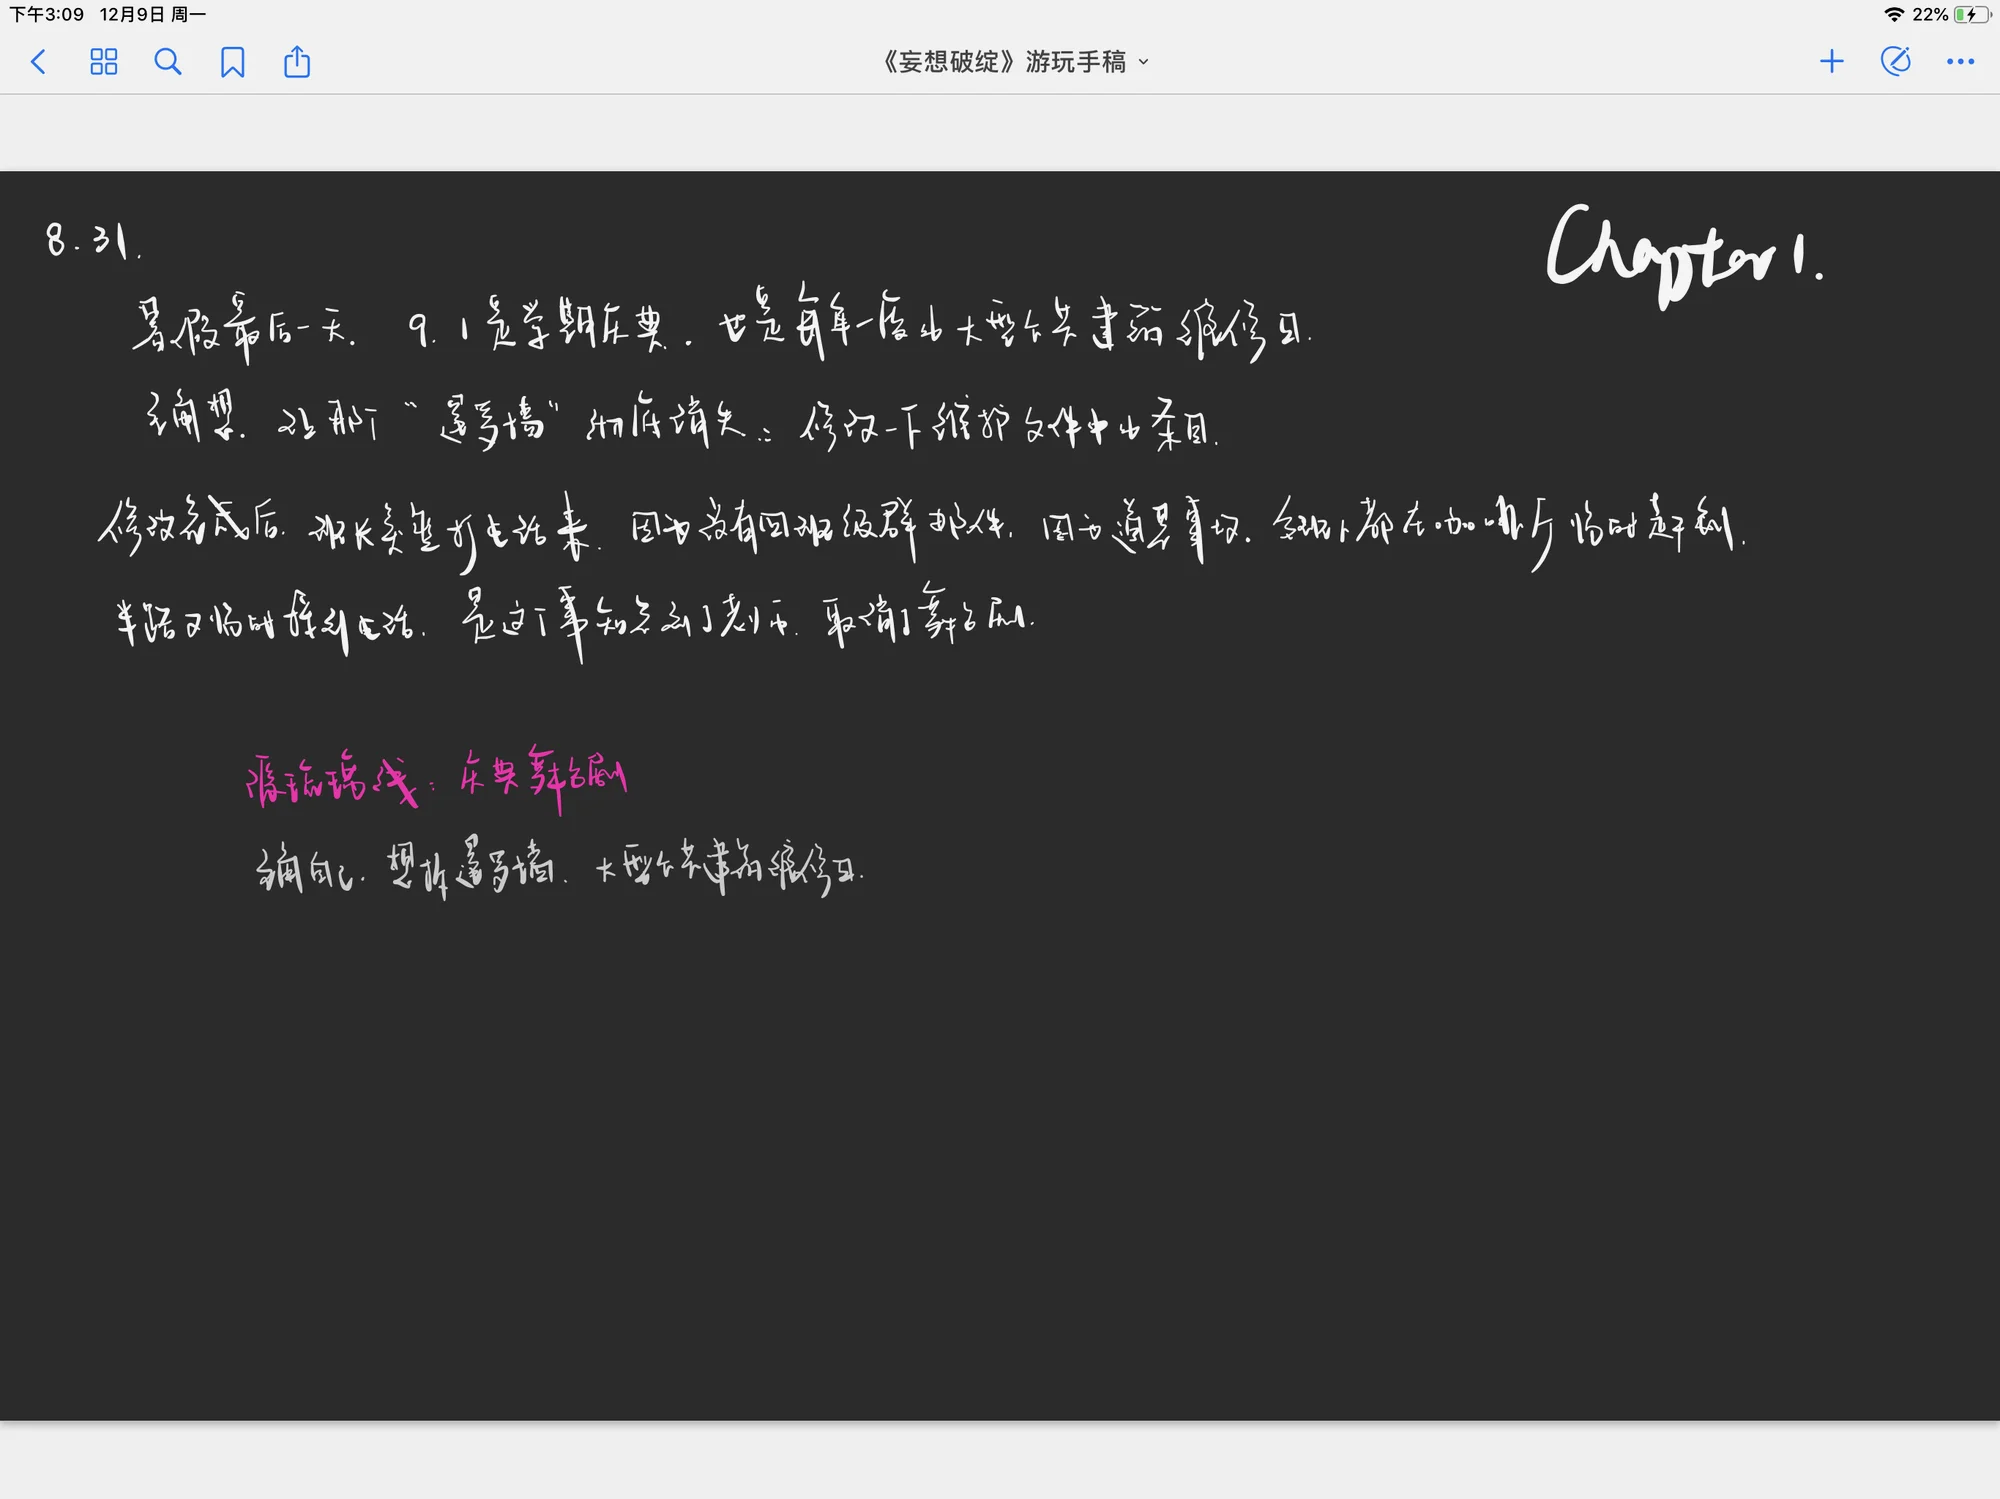 下午3:09 12月9日 周一 22%
《妄想破绽》游玩手稿
8.31.
Chapter 1.
暑假最后一天. 9.1是学期庆典. 也是每年一度的大型公共建筑维修日.
主角想. 让那个“暹罗墙”彻底消失. 修改一下维护文件中的条目.
修改完成后. 班长美 打电话来. 因为没有回班级群邮件. 因为道具事故. 全班人都在咖啡厅临时赶制.
半路又临时接到电话. 是这个事知会到了老师. 取消了舞台剧.
琉璃线: 庆典舞台剧
主角自己. 想拆暹罗墙. 大型公共建筑维修日.